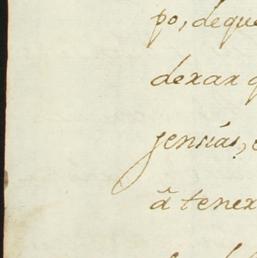 po, de que
dexar q
gensias,
â tener